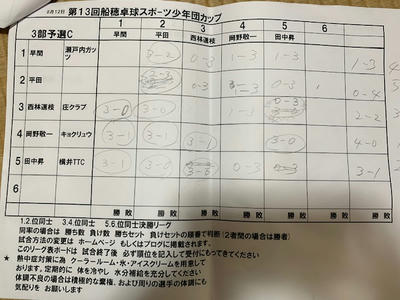 8月12日 第13回船穂卓球スポーツ少年団カップ
3部予選C 1 早間 2 平田 3 西林道枝 4 岡野敬一 5 田中昇 6
1 早間 瀬戸内ガッツ 3-2 0-3 1-3 1-3 1-3 4
2 平田 0-3 1-3 0-3 0-4
3 西林道枝 庄クラブ 3-0 3-0 0-3 2-2
4 岡野敬一 キョクリュウ 3-1 3-1 3-0
5 田中昇 横井TTC 3-1 3-0 0-3 3-1
6
勝 敗 勝 敗 勝 敗 勝 敗 勝 敗 勝 敗
1.2.位同士 3.4.位同士 5.6.位同士決勝リーグ
同率の場合は 勝ち数 負け数 勝ちセット 負けセットの順番で判断(2者間の場合は勝者)
試合方法の変更は ホームページ もしくはブログに掲載されます。
このリーグ表ボードは 試合終了後 必ず順位を記入して受付にもってきてください
★ 熱中症対策に為 クーラールーム・氷・アイスクリームを用意して
おります。定期的に 体を冷やし 水分補給を充分してください
体調不良の場合は積極的な棄権、および周りの選手の体調にも
気配りを お願いします